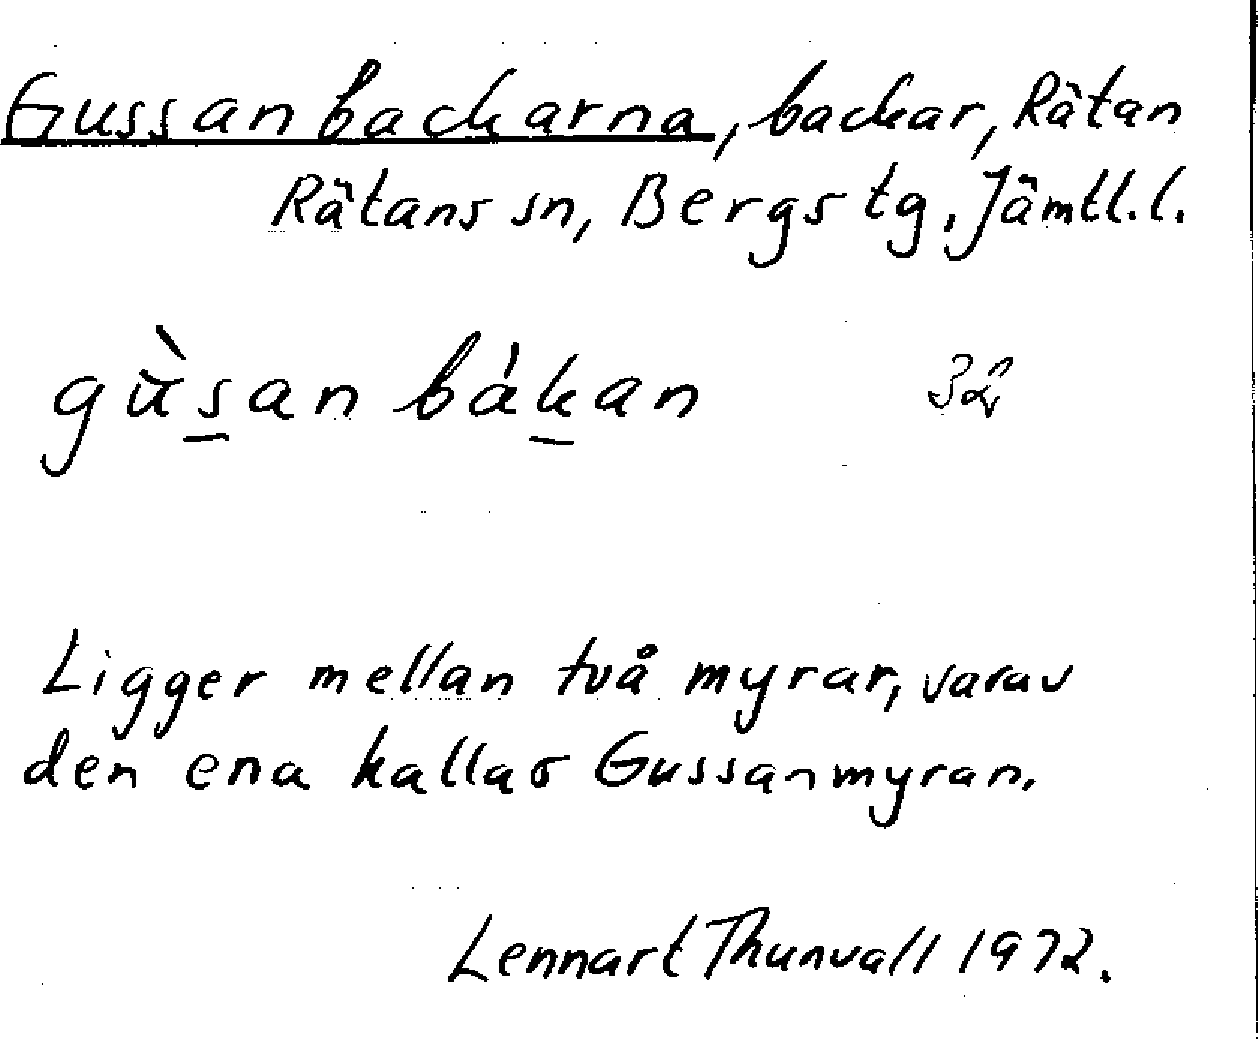 Gussanbackarna, backar, Rätan
Rätans sn, Bergs tg. Jämtl.l.
gùs̲an bák̲an 32
Ligger mellan två myrar, varav
den ena kallas Gussanmyran.
Lennart Thunvall 1972.